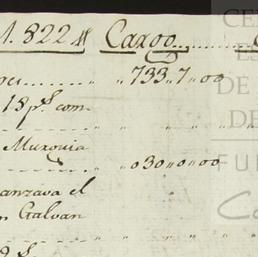 1.822 Cargo
733,,7,,00
18 p.s com
Murguia
030,,0,,00
anzava el
n Galvan
CE
ES
DE
DE
FU
Ca